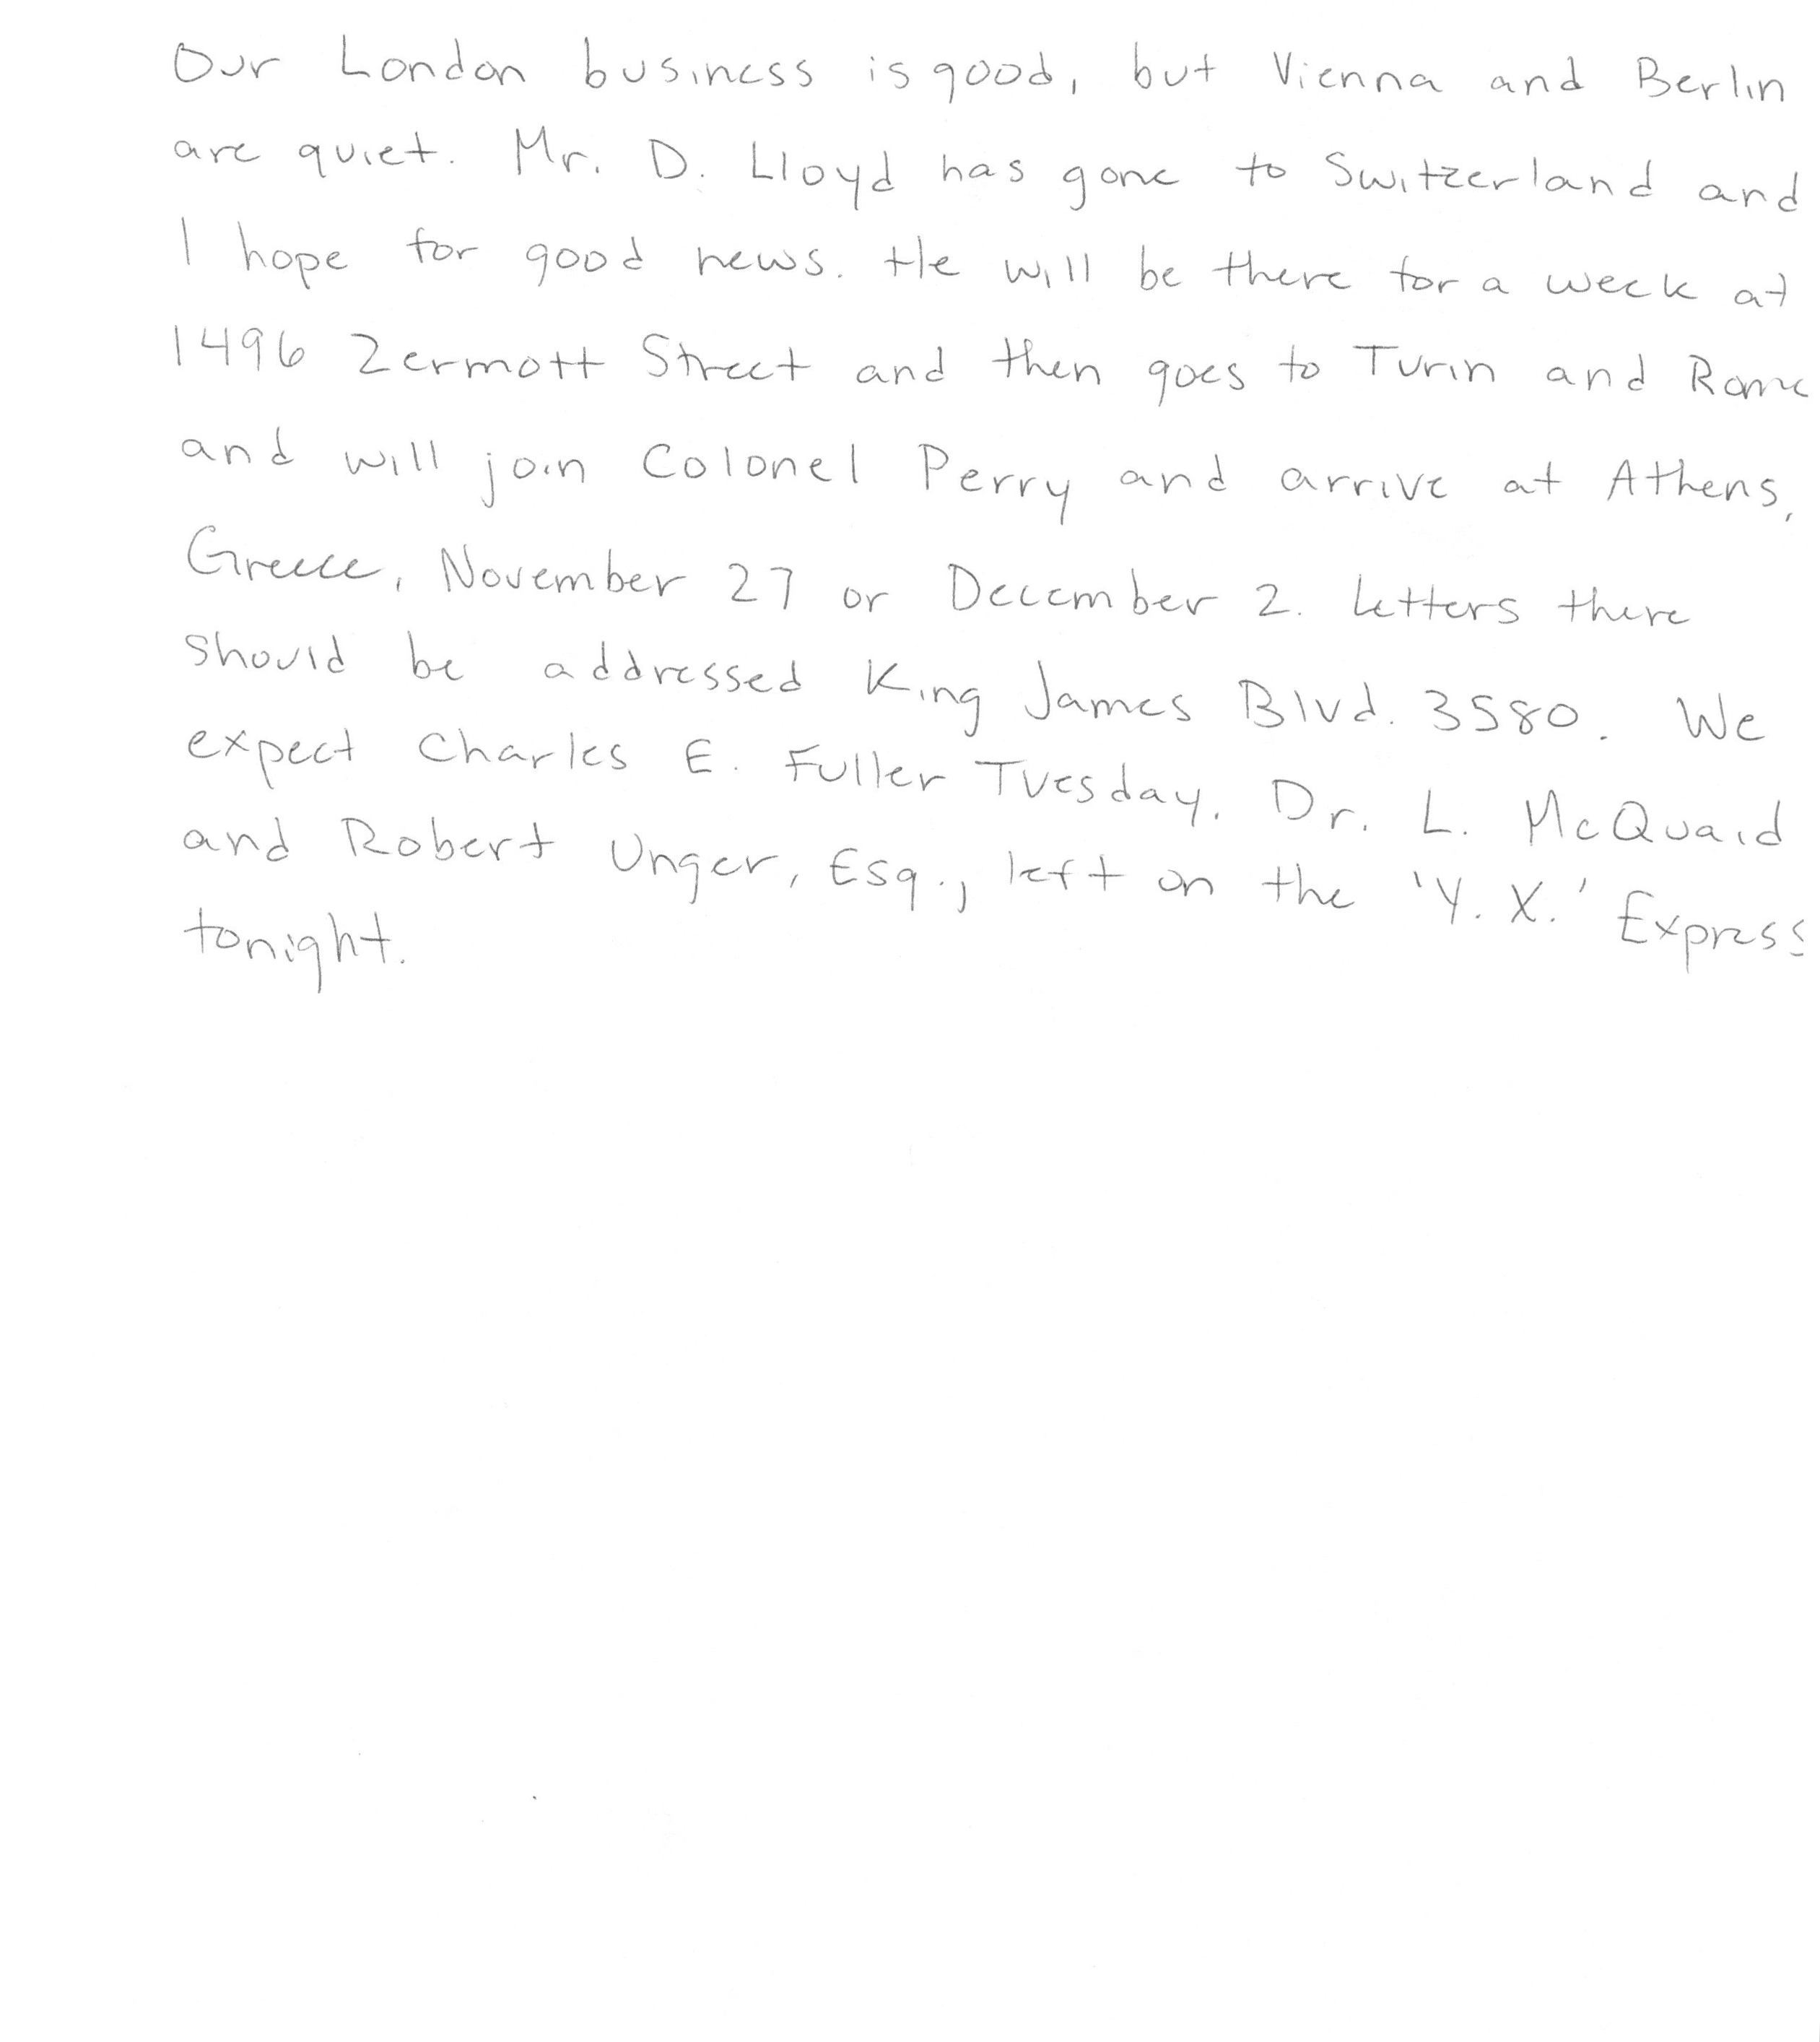 Our London business is good, but Vienna and Berlin
are quiet. Mr. D. Lloyd has gone to Switzerland and
I hope for good news. He will be there for a week at
1496 Zermott Street and then goes to Turin and Rome
and will join Colonel Perry and arrive at Athens,
Greece, November 27 or December 2. Letters there
should be addressed King James Blvd. 3580. We
expect Charles E. Fuller Tuesday. Dr. L. McQuaid
and Robert Unger, Esq., left on the 'Y. X.' Express
tonight.